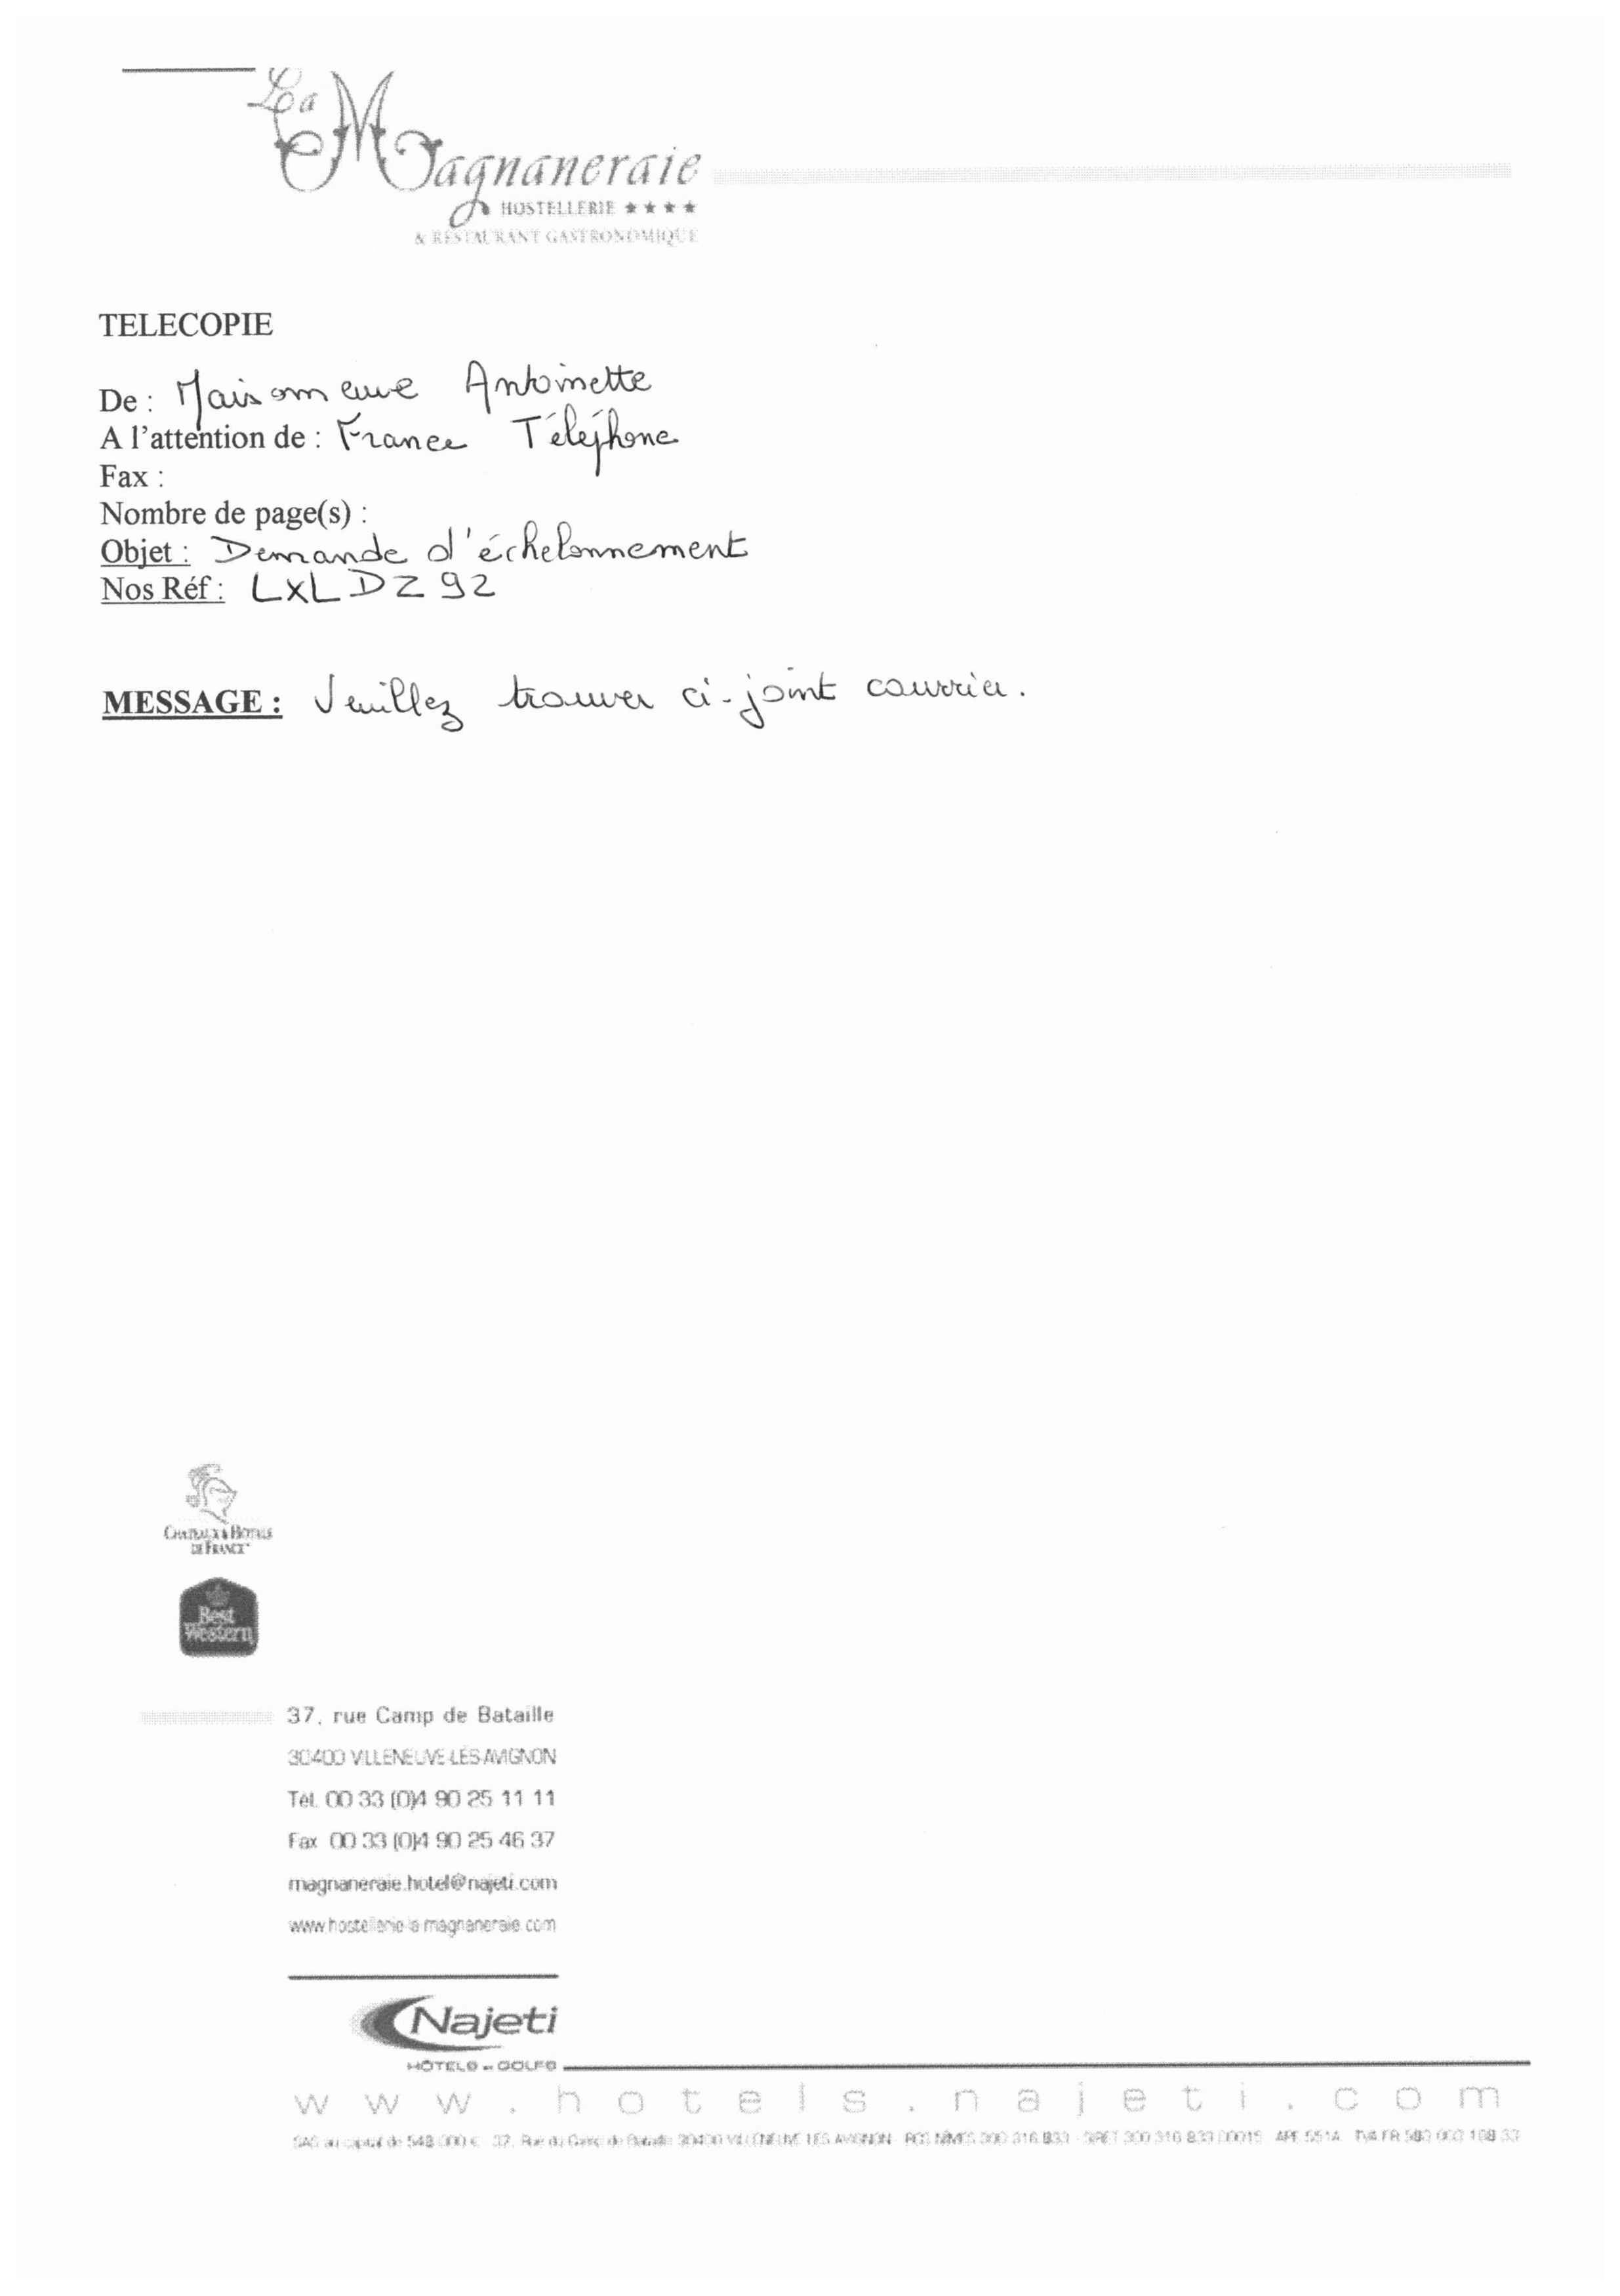 La Magnaneraie
HOSTELLERIE ★★★★
& RESTAURANT GASTRONOMIQUE
TELECOPIE
De : Maisonneuve Antoinette
A l'attention de : France Téléphone
Fax :
Nombre de page(s) :
Objet : Demande d'échelonnement
Nos Réf : LXLDZ92
MESSAGE : Veuillez trouver ci-joint courrier.
CHATEAUX & HOTELS
DE FRANCE
Best
Western
37, rue Camp de Bataille
30400 VILLENEUVE-LÈS-AVIGNON
Tél. 00 33 (0)4 90 25 11 11
Fax 00 33 (0)4 90 25 46 37
magnaneraie.hotel@najeti.com
www.hostellerie-la-magnaneraie.com
Najeti
HÔTELS GOLFS
www.hotels.najeti.com
SAS au capital de 548 000 € 37, Rue du Camp de Bataille 30400 VILLENEUVE LES AVIGNON RCS NÎMES 300 316 833 - SIRET 300 316 833 00015 APE 551A TVA FR